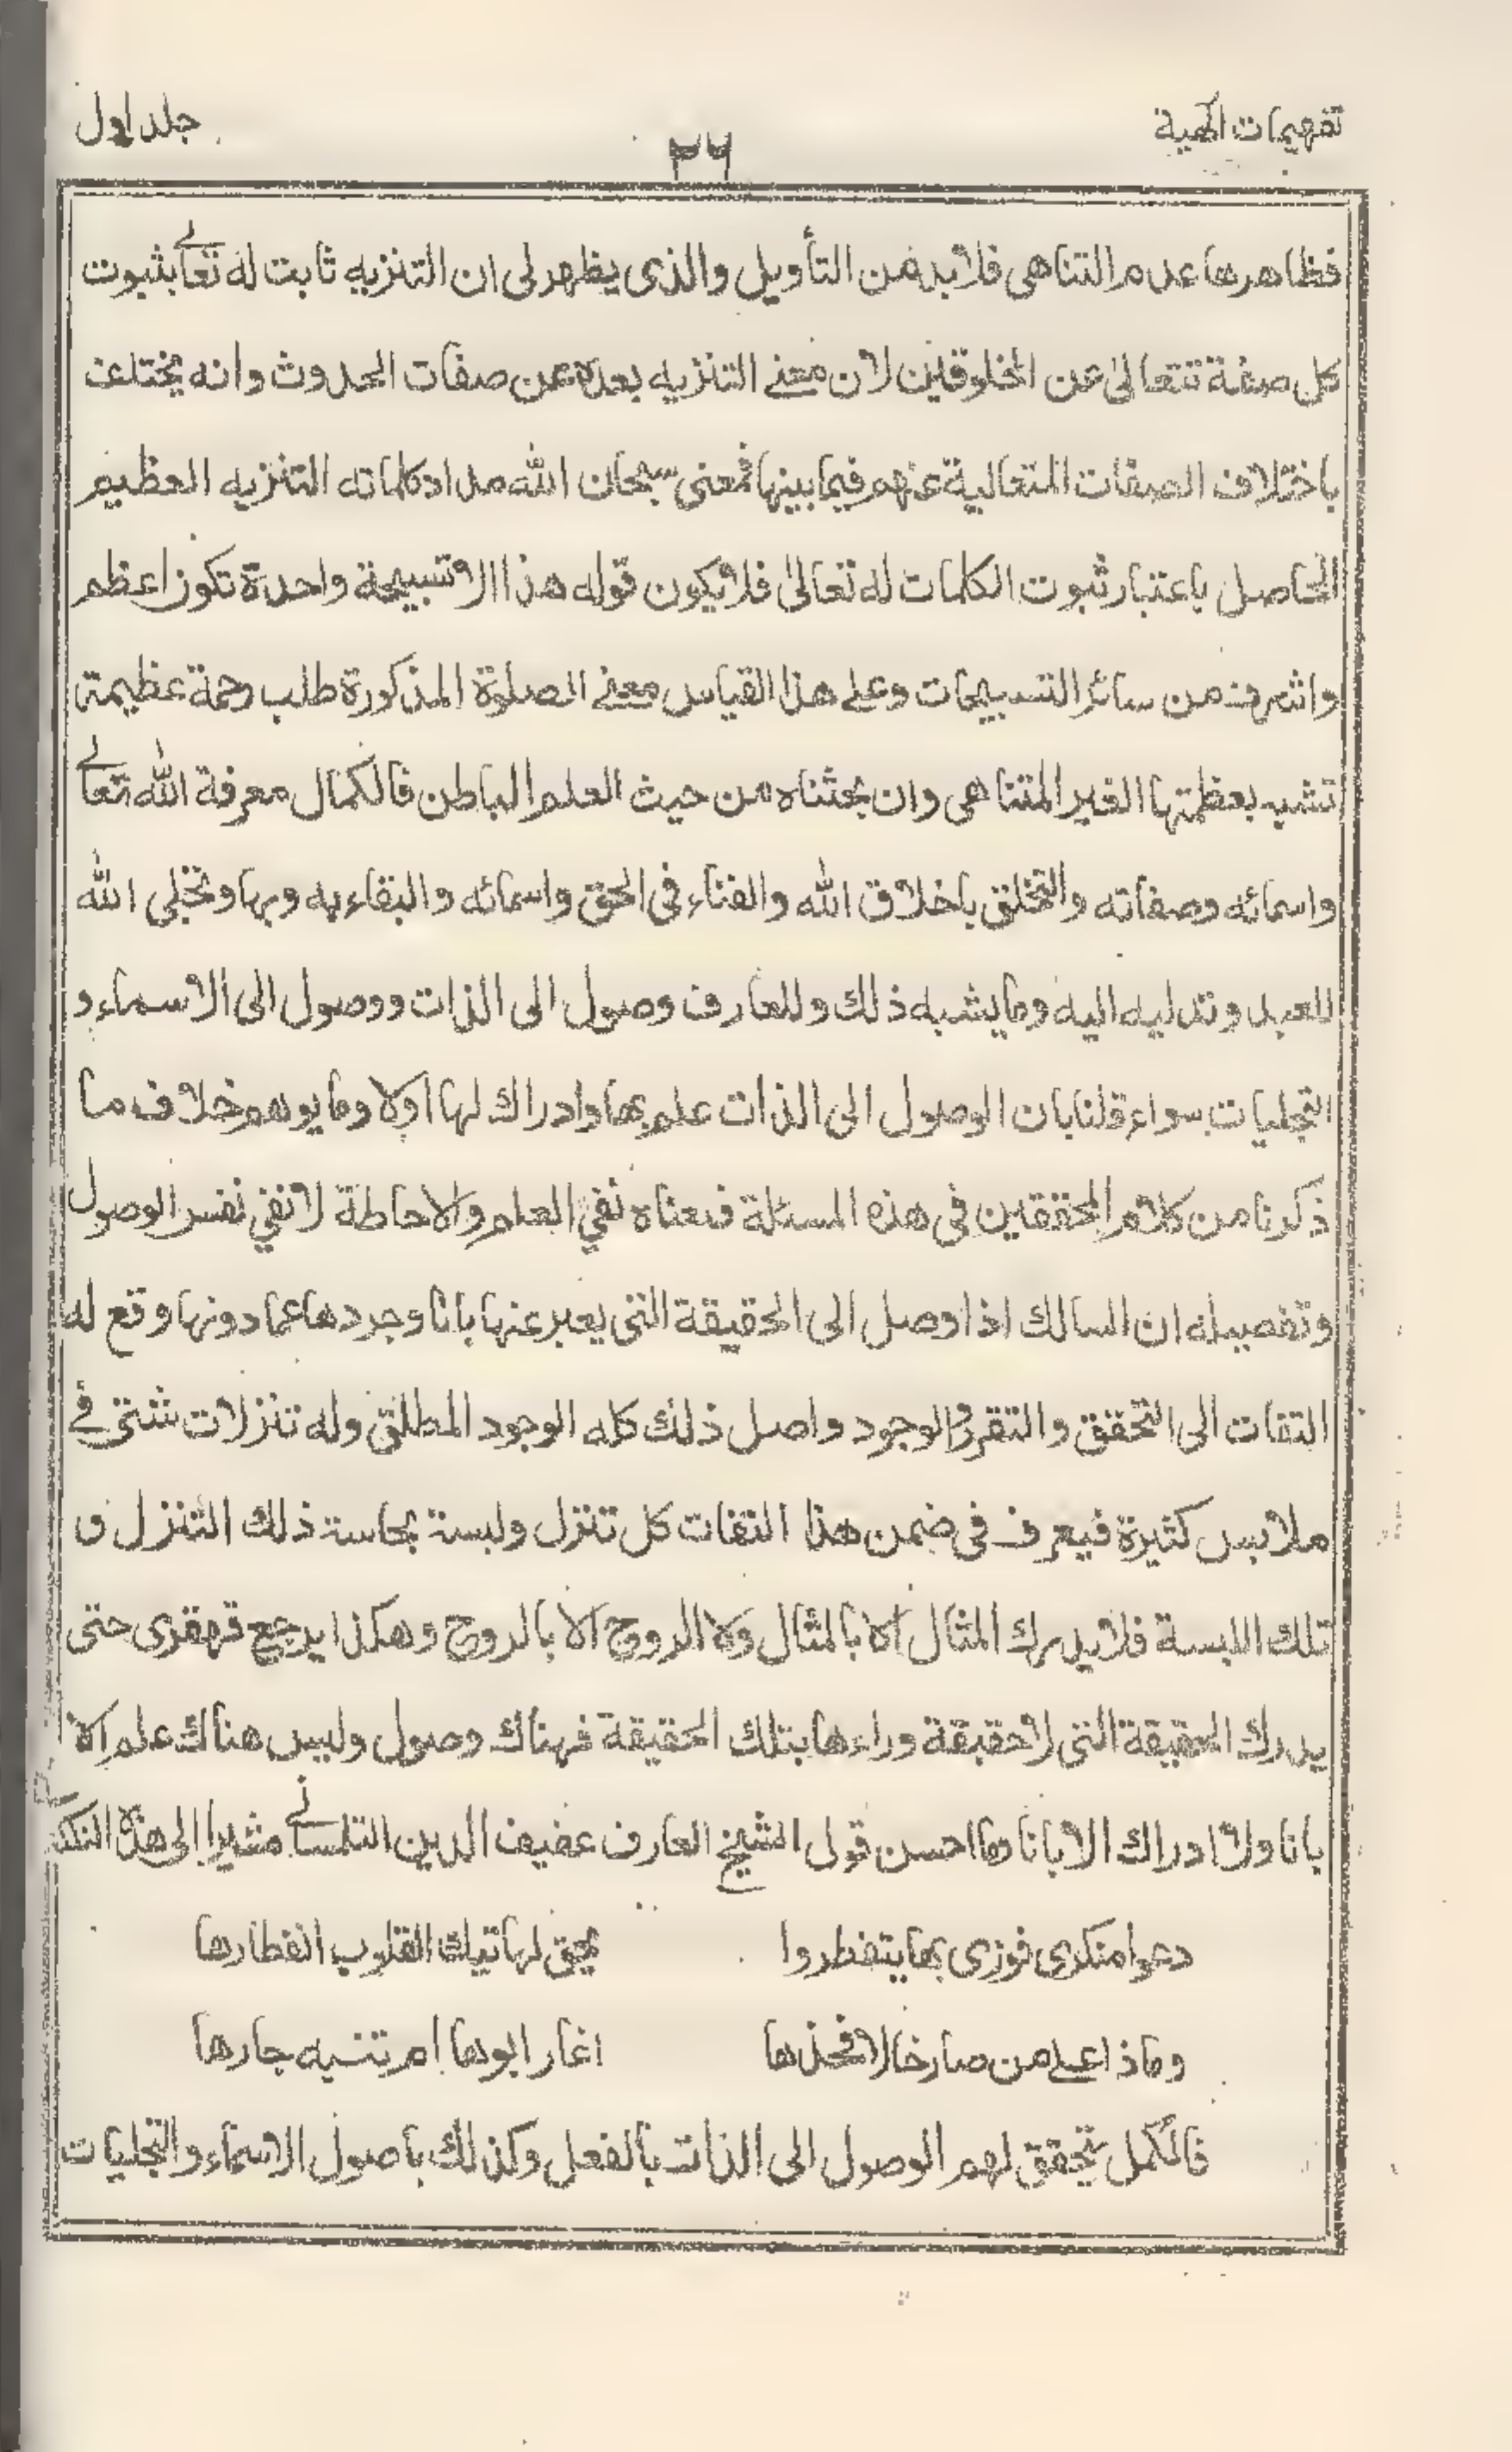 تفهيمات الٰهية
٣٦
جلد اول
فظاهرها عدم التناهى فلابد من التأويل والذى يظهر لى ان التنزيه ثابت له تعالى بثبوت
كل صفة تتعالى عن المخلوقين لان معنے التنزيه بعده عن صفات الحدوث وانه يختلف
باختلاف الصفات المتعالية عنهم فيما بينها فمعنى سبحان الله مداد كلماته التنزيه العظيم
الحاصل باعتبار ثبوت الكلمات له تعالىٰ فلا يكون قوله هذا الا تسبيحة واحدة تكون اعظم
واشرف من سائر التسبيحات وعلے هذا القياس معنے الصلوة المذكورة طلب رحمة عظيمة
تشبه بعظمتها الغير المتناهى وان بحثناه من حيث العلم الباطن فالكمال معرفة الله تعالے
واسمائه وصفاته والتخلق باخلاق الله والفناء فى الحق واسمائه والبقاء به وبها وتجلى الله
للعبد وتدليه اليه وما يشبه ذلك وللعارف وصول الى الذات ووصول الى الاسماء و
التجليات سواء قلنا بان الوصول الى الذات علم بها وادراك لها اولا وما يوهم خلاف ما
ذكرنا من كلام المحققين فى هذه المسئلة فمعناه نفي العلم والاحاطة لا نفي نفس الوصول
وتفصيله ان السالك اذا وصل الى الحقيقة التى يعبر عنها بانا وجردها عما دونها وقع له
التفات الى التحقق والتقرر والوجود واصل ذلك كله الوجود المطلق وله تنزلات شتى فے
ملابس كثيرة فيعرف فى ضمن هذا التفات كل تنزل ولبسة بحاسة ذلك التنزل و
تلك اللبسة فلا يدرك المثال الا بالمثال ولا الروح الا بالروح وهكذا يرجع قهقرى حتى
يدرك الحقيقة التى لا حقيقة وراءها بتلك الحقيقة فهناك وصول وليس هناك علم الا
بانا ولا ادراك الا بانا وما احسن قول الشيخ العارف عفيف الدين التلمسانے مشيرا الى هذه النكتة
دعوا منكرى فوزى بها يتفطروا يحق لهاتيك القلوب انفطارها
وماذا علے من صار خالا لخدها اغار ابوها ام تنبه جارها
فالكمل تحقق لهم الوصول الى الذات بالفعل وكذلك باصول الاسماء والتجليات